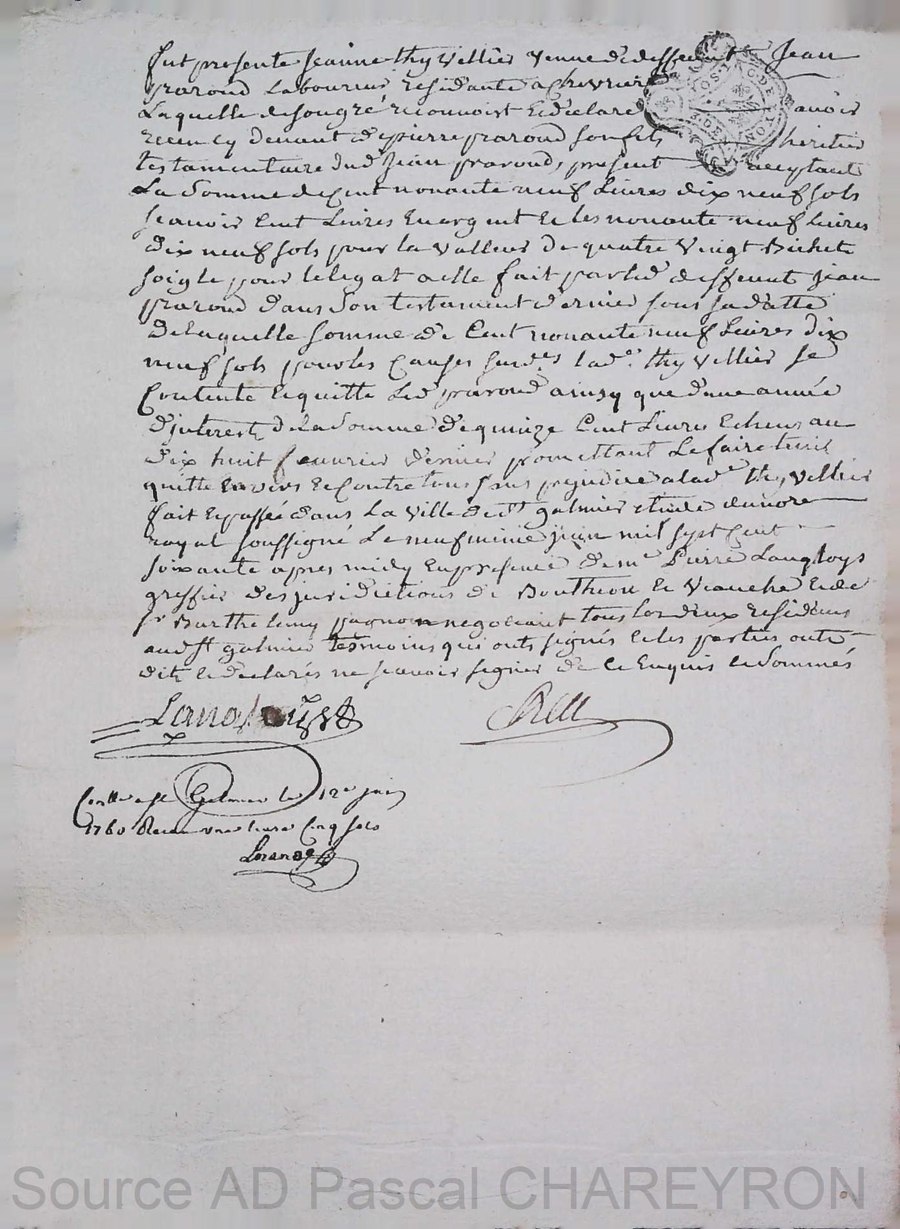 fut presente jeanne thyvellier veuve de deffeunt Jean
praroud laboureur residante a Chevrier
Laquelle de son gré reconnoist et declare avoir
receu cy devant de pierre praroud son fils heritier
testamentaire dud jean praroud, present acceptant
La Somme de Cent nonante neuf Livres dix neuf sols
scavoir Cent Livres en argent et les nonante neuf Livres
dix neuf sols pour la valleur de quatre vingt Bichets
soigle pour le legat a elle fait par led deffeunt jean
praroud dans son testament dernier sous sa datte
de laquelle somme de Cent nonante neuf Livres dix
neuf sols pour les Causes susd.es lad.e thyvellier se
Contente et quitte led praroud ainsy que d'une année
d'interest de la somme de quinze Cent Livres Echeus au
dix huit feauvrier dernier promettant le faire tenir
quitte envers et contre tous sans prejudice a lad.e thyvellier
fait et passé dans la ville de st galmier etude du nore
royal soussigné Le neufmieme juin mil sept Cent
soixante apres midy en presence de me Pierre Langloys
greffier des juridictions de Bouthéon et Veauche et de
sr Barthelemy pagnon negociant tous les deux residens
aud st galmier tesmoins qui onts signés et les parties onts
dit et declarés ne scavoir signer de ce Enquis et Sommés
Langloys
Conllé a st Galmier le 12e juin
1760 Receu une livre Cinq sols
Source AD Pascal CHAREYRON